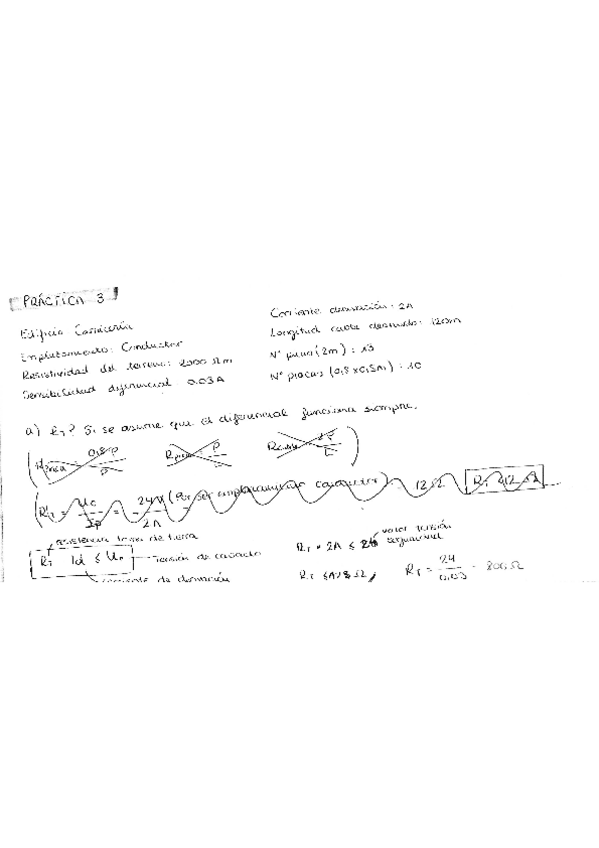 PRÁCTICA 3
Edificio Carnicería
Emplazamiento: Conductor
Resistividad del terreno: 2000 Ωm
Sensibilidad diferencial 0.03A
Corriente derivación: 2A
Longitud cable desnudo: 120m
Nº picas (2m): 13
Nº placas (0,8x0,5m): 10
a) RT? Si se asume que el diferencial funciona siempre.
(Rplaca = 0,8·ρ / P Rpica = ρ / L Rcable = 2ρ / L)
(RT = Uc / = 24V / 2A (Por ser emplazamiento conductor) = 12Ω RT ≤ 12 Ω
resistencia toma de tierra
RT · Id ≤ Uc
tensión de contacto
corriente de derivación
RT · 2A ≤ 24 valor tensión
RT ≤ Ω
RT = 24 / 0,03 = 800Ω